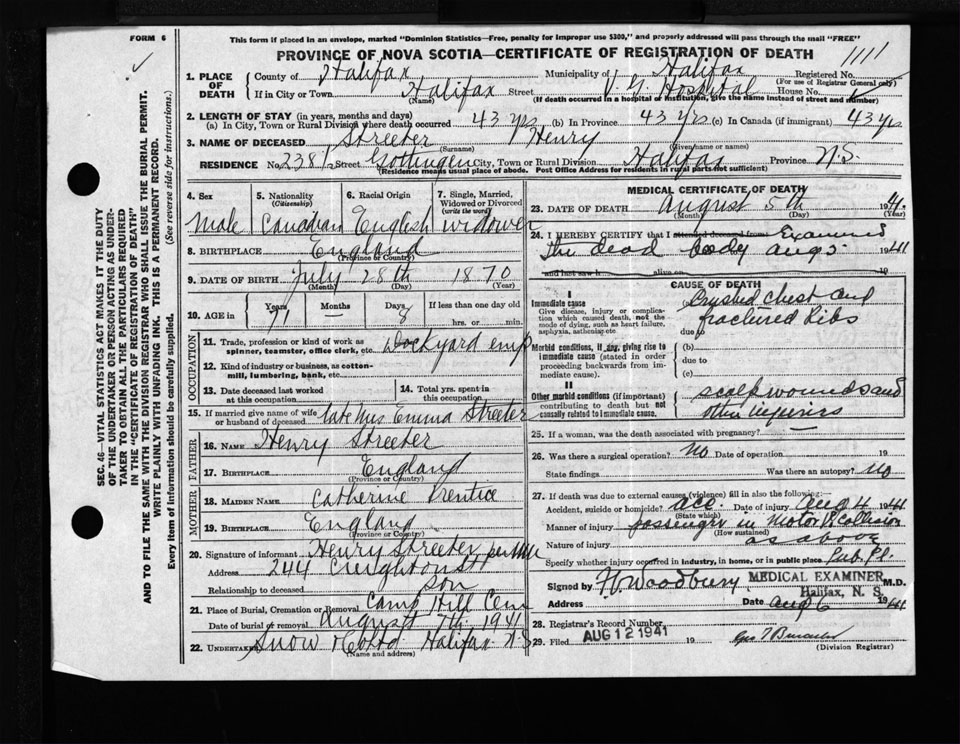 FORM 6
This form if placed in an envelope, marked "Dominion Statistics—Free, penalty for improper use $300," and properly addressed will pass through the mail "FREE"
PROVINCE OF NOVA SCOTIA—CERTIFICATE OF REGISTRATION OF DEATH
1111
1. PLACE OF DEATH
County of Halifax Municipality of Halifax Registered No.
(For use of Registrar General only)
If in City or Town Halifax Street V. G. Hospital House No.
(Name) (If death occurred in a hospital or institution, give the name instead of street and number)
2. LENGTH OF STAY (in years, months and days)
(a) In City, Town or Rural Division where death occurred 43 yrs (b) In Province 43 yrs (c) In Canada (if immigrant) 43 yrs
3. NAME OF DECEASED Streeter Henry
(Surname) (Given name or names)
RESIDENCE No. 238½ Street Gottingen City, Town or Rural Division Halifax Province N.S.
(Residence means usual place of abode. Post Office Address for residents in rural parts not sufficient)
4. Sex
Male
5. Nationality
(Citizenship)
Canadian
6. Racial Origin
English
7. Single, Married, Widowed or Divorced
(write the word)
widower
8. BIRTHPLACE England
(Province or Country)
9. DATE OF BIRTH July 28th 1870
(Month) (Day) (Year)
10. AGE in Years Months Days If less than one day old
71 — 8 hrs. or min.
OCCUPATION
11. Trade, profession or kind of work as spinner, teamster, office clerk, etc. Dockyard emp
12. Kind of industry or business, as cotton-mill, lumbering, bank, etc.
13. Date deceased last worked at this occupation
14. Total yrs. spent in this occupation
15. If married give name of wife or husband of deceased late Mrs Emma Streeter
FATHER
16. NAME Henry Streeter
17. BIRTHPLACE England
(Province or Country)
MOTHER
18. MAIDEN NAME Catherine Prentice
19. BIRTHPLACE England
(Province or Country)
20. Signature of informant Henry Streeter per
Address 244 Creighton St
Relationship to deceased son
21. Place of Burial, Cremation or Removal Camp Hill Cem
Date of burial or removal August 7th 1941
22. UNDERTAKER Snow & Co Ltd Halifax N.S
(Name and address)
MEDICAL CERTIFICATE OF DEATH
23. DATE OF DEATH August 5th 1941
(Month) (Day) (Year)
24. I HEREBY CERTIFY that I attended deceased from Examined
the dead body Aug 5 1941
and last saw h alive on 19
CAUSE OF DEATH
I
Immediate cause
Give disease, injury or complication which caused death, not the mode of dying, such as heart failure, asphyxia, asthenia, etc
Crushed chest and
fractured Ribs
due to
Morbid conditions, if any, giving rise to immediate cause (stated in order proceeding backwards from immediate cause).
(b)
due to
(c)
II
Other morbid conditions (if important) contributing to death but not causally related to immediate cause.
scalp wounds and
other injuries
25. If a woman, was the death associated with pregnancy? —
26. Was there a surgical operation? No Date of operation 19
State findings Was there an autopsy? No
27. If death was due to external causes (violence) fill in also the following:
Accident, suicide or homicide? acc. Date of injury Aug 4 1941
(State which)
Manner of injury passenger in Motor V. Collision
(How sustained)
Nature of injury as above
Specify whether injury occurred in industry, in home, or in public place Pub. Pl.
Signed by Woodbury MEDICAL EXAMINER M.D.
Halifax, N. S.
Address Date Aug 6 1941
28. Registrar's Record Number
29. Filed AUG 12 1941 19
(Division Registrar)
SEC. 46—VITAL STATISTICS ACT MAKES IT THE DUTY OF THE UNDERTAKER OR PERSON ACTING AS UNDERTAKER TO OBTAIN ALL THE PARTICULARS REQUIRED IN THE "CERTIFICATE OF REGISTRATION OF DEATH" AND TO FILE THE SAME WITH THE DIVISION REGISTRAR WHO SHALL ISSUE THE BURIAL PERMIT.
WRITE PLAINLY WITH UNFADING INK. THIS IS A PERMANENT RECORD.
Every item of Information should be carefully supplied. (See reverse side for instructions.)